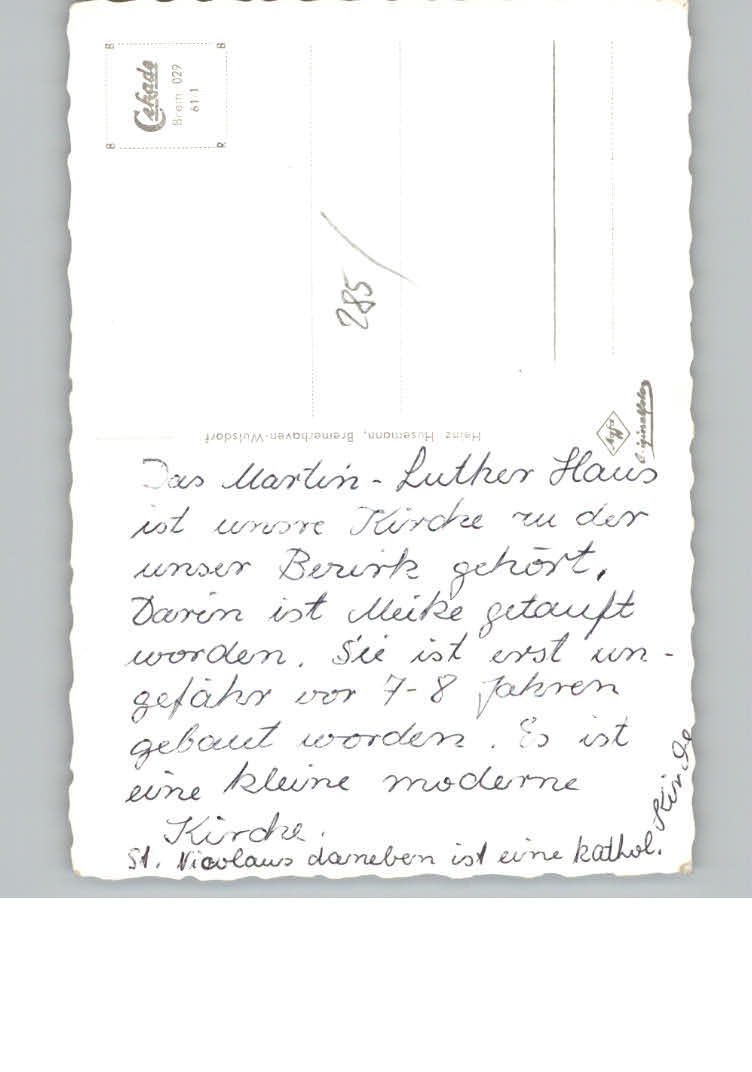 Cekade
Brem 029
61 1
B B
B R
285
Heinz Husemann, Bremerhaven-Wulsdorf
Agfa
Originalfoto
Das Martin-Luther Haus
ist unsre Kirche zu der
unser Bezirk gehört.
Darin ist Meike getauft
worden. Sie ist erst un-
gefähr vor 7-8 Jahren
gebaut worden. Es ist
eine kleine moderne
Kirche.
St. Nicolaus darneben ist eine kathol. Kirche